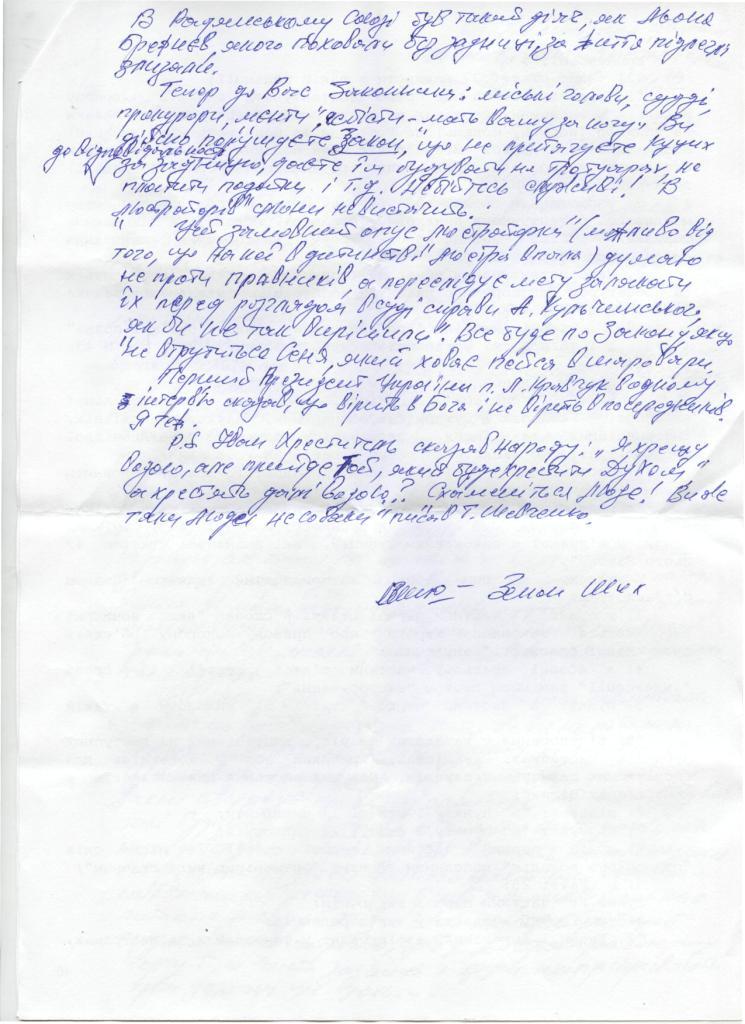 В Радянському Союзі був такий діяч, як Льоня
Брежнєв, якого поховали без задниці, за життя підлеглі
злизали.
Тепер до Вас Законники: міські голови, судді,
прокурори, менти, есбісти - мать Вашу за ногу. Ви
дійсно порушуєте Закон, що не притягуєте Куцих
до відповідальності
за задницю, даєте їм будувати на тротуарах, не
платити податки і т.д. Небійтесь сердешні! В
"люстраторів" слюни невистачить.
Цей замовний опус люстраторки" (можливо від
того, що на неї в дитинстві люстра впала) думаю
не проти правників, а переслідує мету залякати
їх перед розглядом в суді справи А. Кульчинського,
як би не так вирішили". Все буде по Закону, якщо
не втрутиться Сеня, який ховає пейса в шаровари.
Перший Президент України п. Л. Кравчук в одному
з інтервю сказав, що вірить в Бога і не вірить в посередників.
Я теж.
P.S. Іван Хреститель сказав народу: "Я хрещу
водою, але прийде Той, який буде хрестити Духом"
а хрестять далі водою? Схаменіться Люде! Ви же
таки люди не собаки" писав Т. Шевченко.
Земон Шик